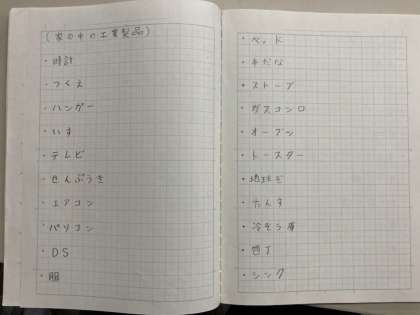 (家の中の工業製品)
・時計
・つくえ
・ハンガー
・いす
・テレビ
・せんぷうき
・エアコン
・パソコン
・DS
・服
・ベッド
・本だな
・ストーブ
・ガスコンロ
・オーブン
・トースター
・地球ぎ
・たんす
・冷ぞう庫
・包丁
・シンク